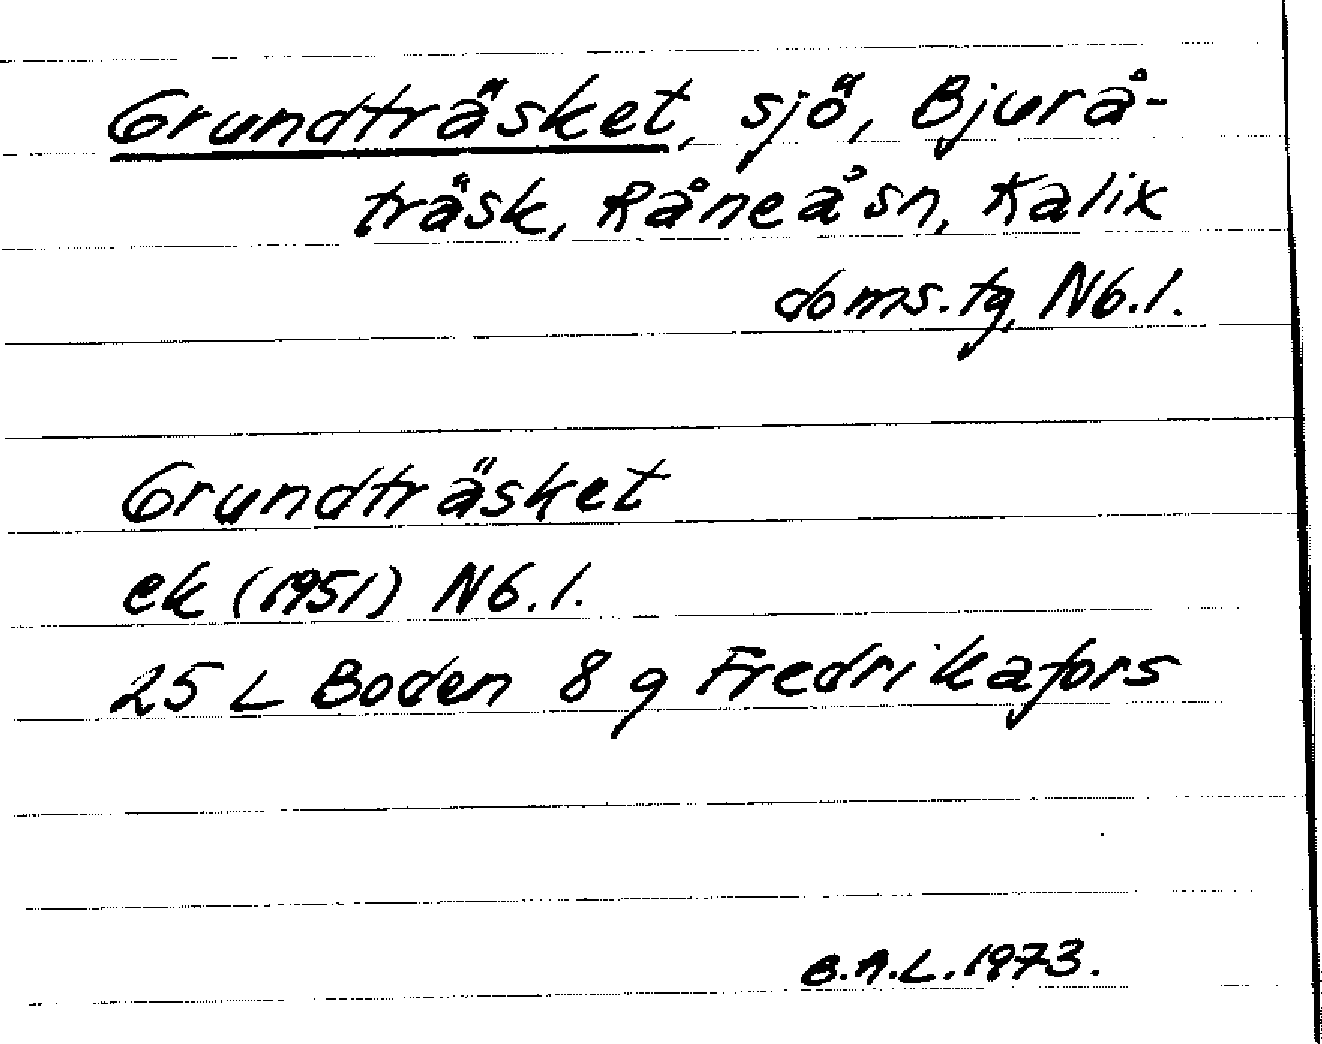 Grundträsket, sjö, Bjurå-
träsk, Råneå sn, Kalix
doms.tg, Nb.l.
Grundträsket
ek (1951) Nb.l.
25 L Boden 8 g Fredrikafors
B.A.L. 1973.